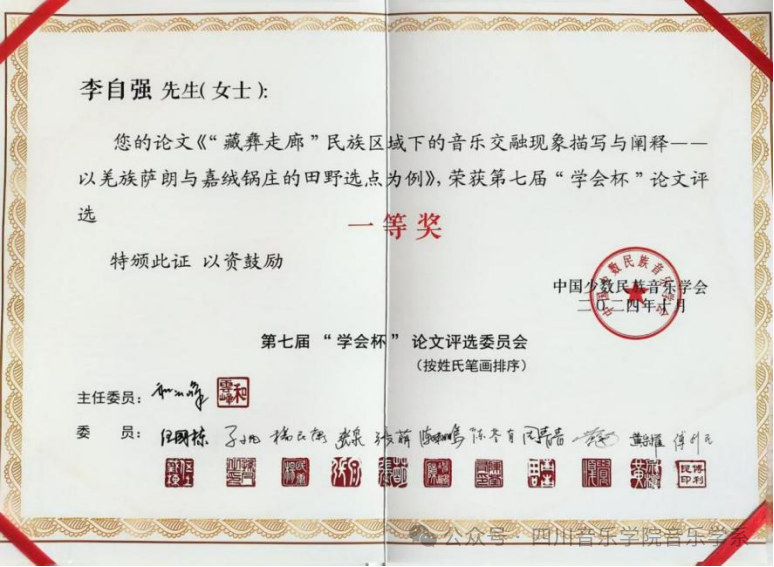 李自强 先生(女士):
您的论文《“藏彝走廊”民族区域下的音乐交融现象描写与阐释——
以羌族萨朗与嘉绒锅庄的田野选点为例》,荣获第七届“学会杯”论文评
选
一等奖
特颁此证 以资鼓励
中国少数民族音乐学会
二〇二四年十月
中国少数民族音乐学会
第七届 “学会杯” 论文评选委员会
(按姓氏笔画排序)
主任委员:
委 员:
公众号 · 四川音乐学院音乐学系